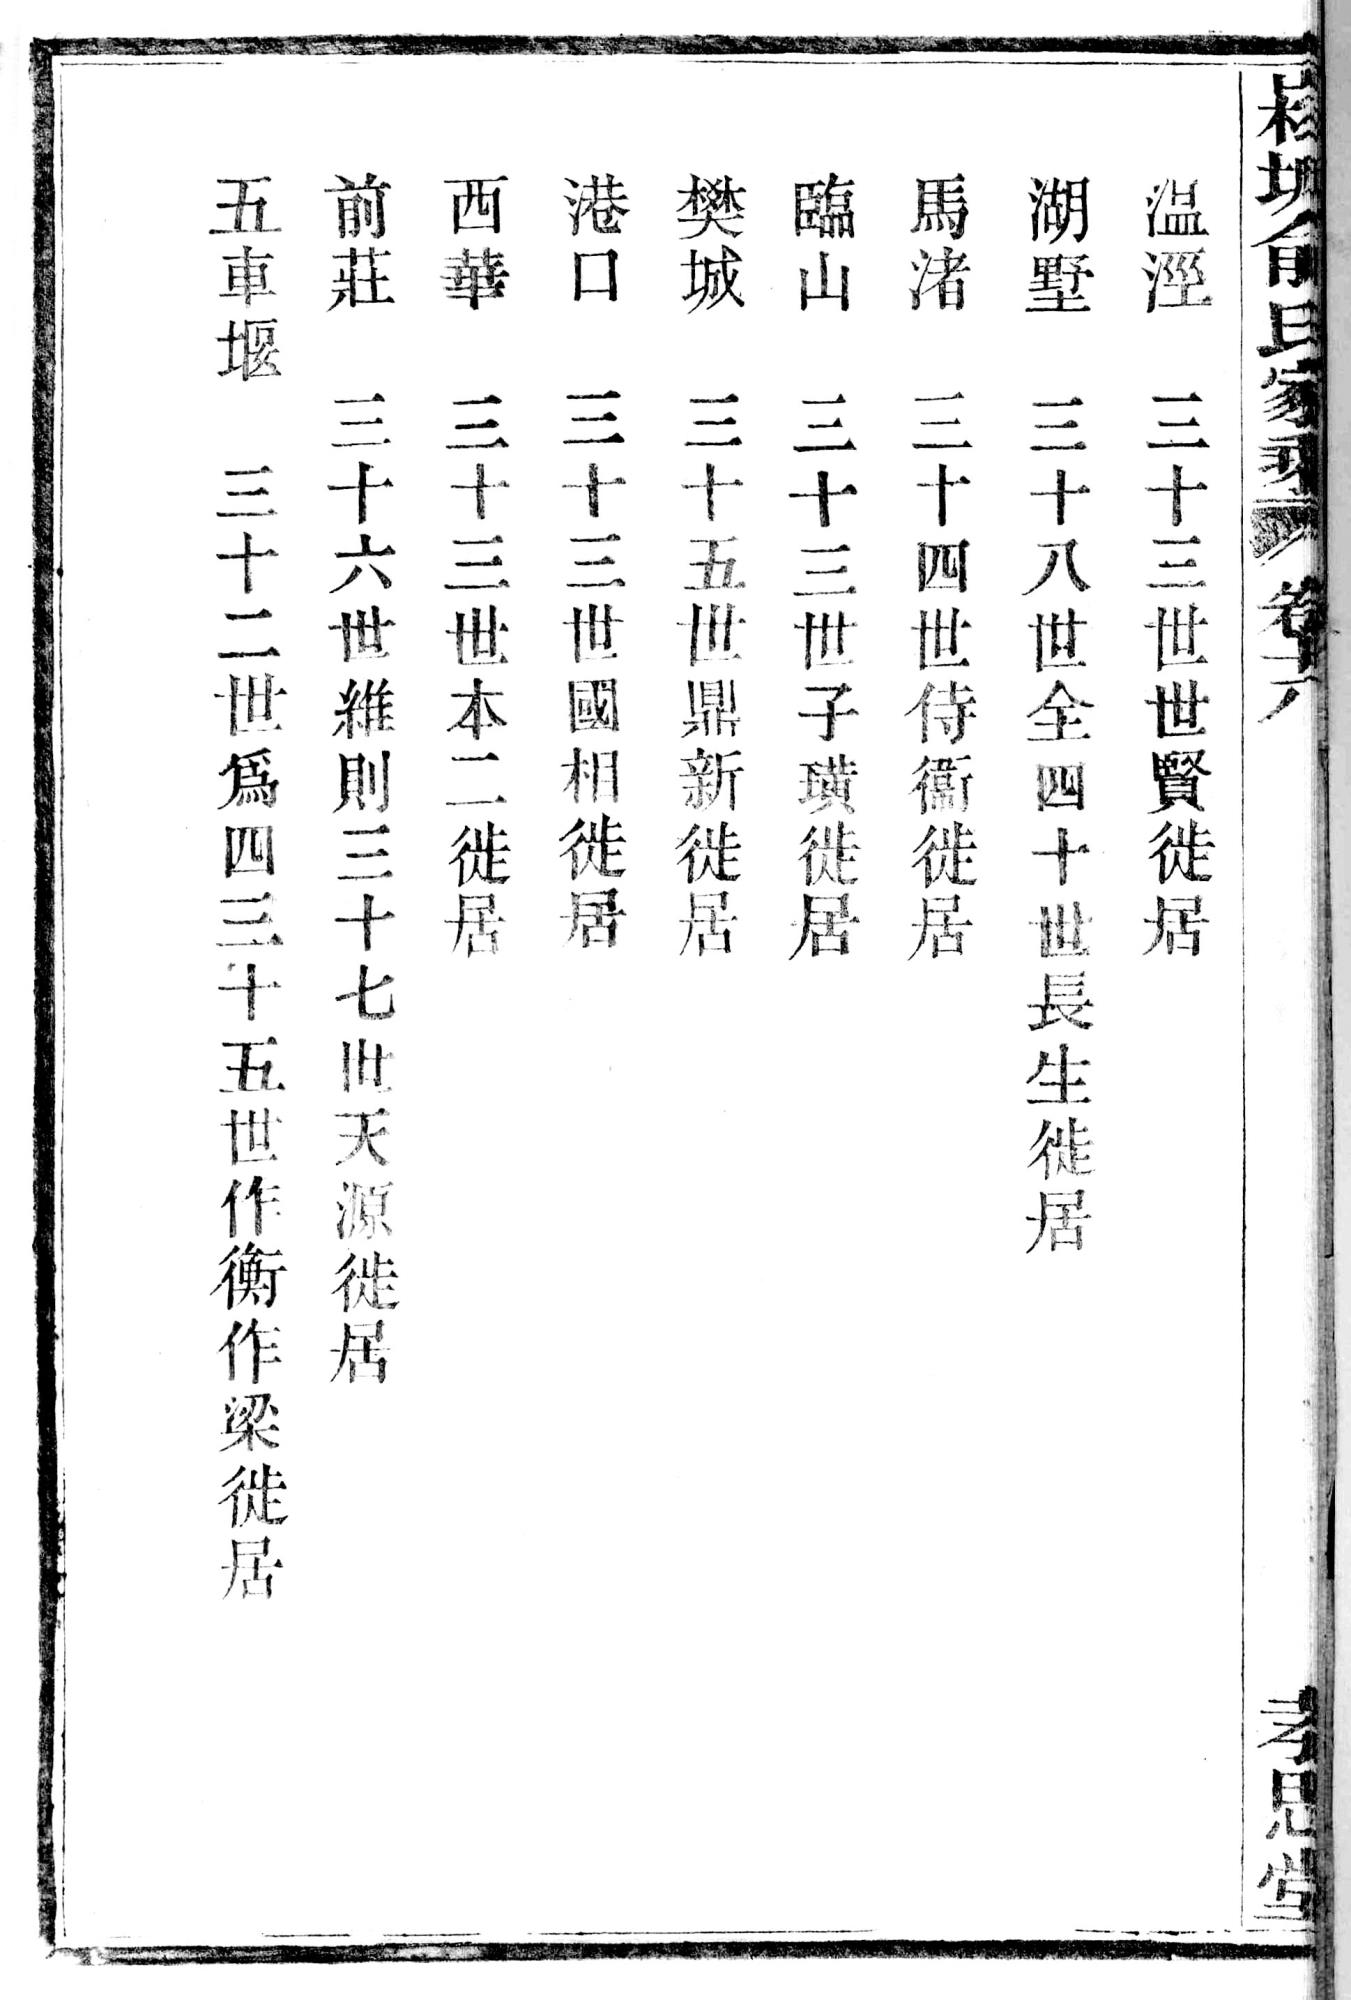 俞氏家乘 卷十六 孝思堂
温涇 三十三世世賢徙居
湖墅 三十八世全四十世長生徙居
馬渚 三十四世侍衞徙居
臨山 三十三世子璜徙居
樊城 三十五世鼎新徙居
港口 三十三世國相徙居
西華 三十三世本二徙居
前莊 三十六世維則三十七世天源徙居
五車堰 三十二世爲四三十五世作衡作梁徙居